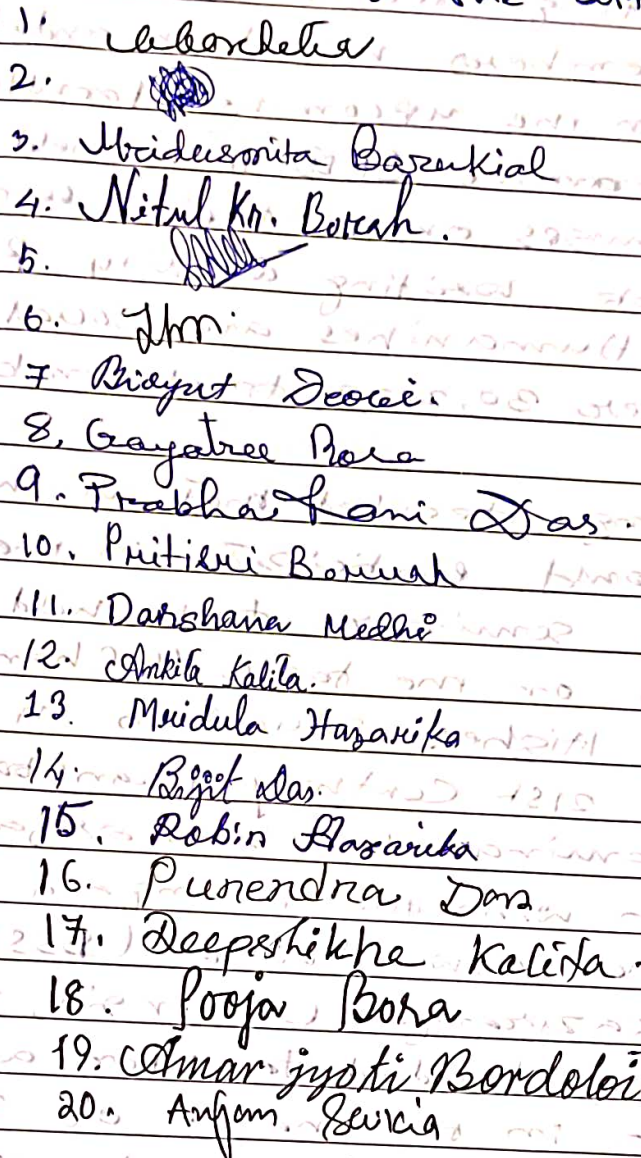 1.
2.
3. Mridusmita Barukial
4. Nitul Kr. Borah.
5.
6.
7 Bidyut Deori.
8. Gayatree Bora
9. Prabha Rani Das.
10. Pritisri Boruah
11. Darshana Medhi
12. Ankita Kalita.
13. Mridula Hazarika
14. Bijit Das.
15. Robin Hazarika
16. Purendra Das
17. Deepshikha Kalita.
18. Pooja Bora
19. Amar jyoti Bordoloi
20. Anjan. Saikia